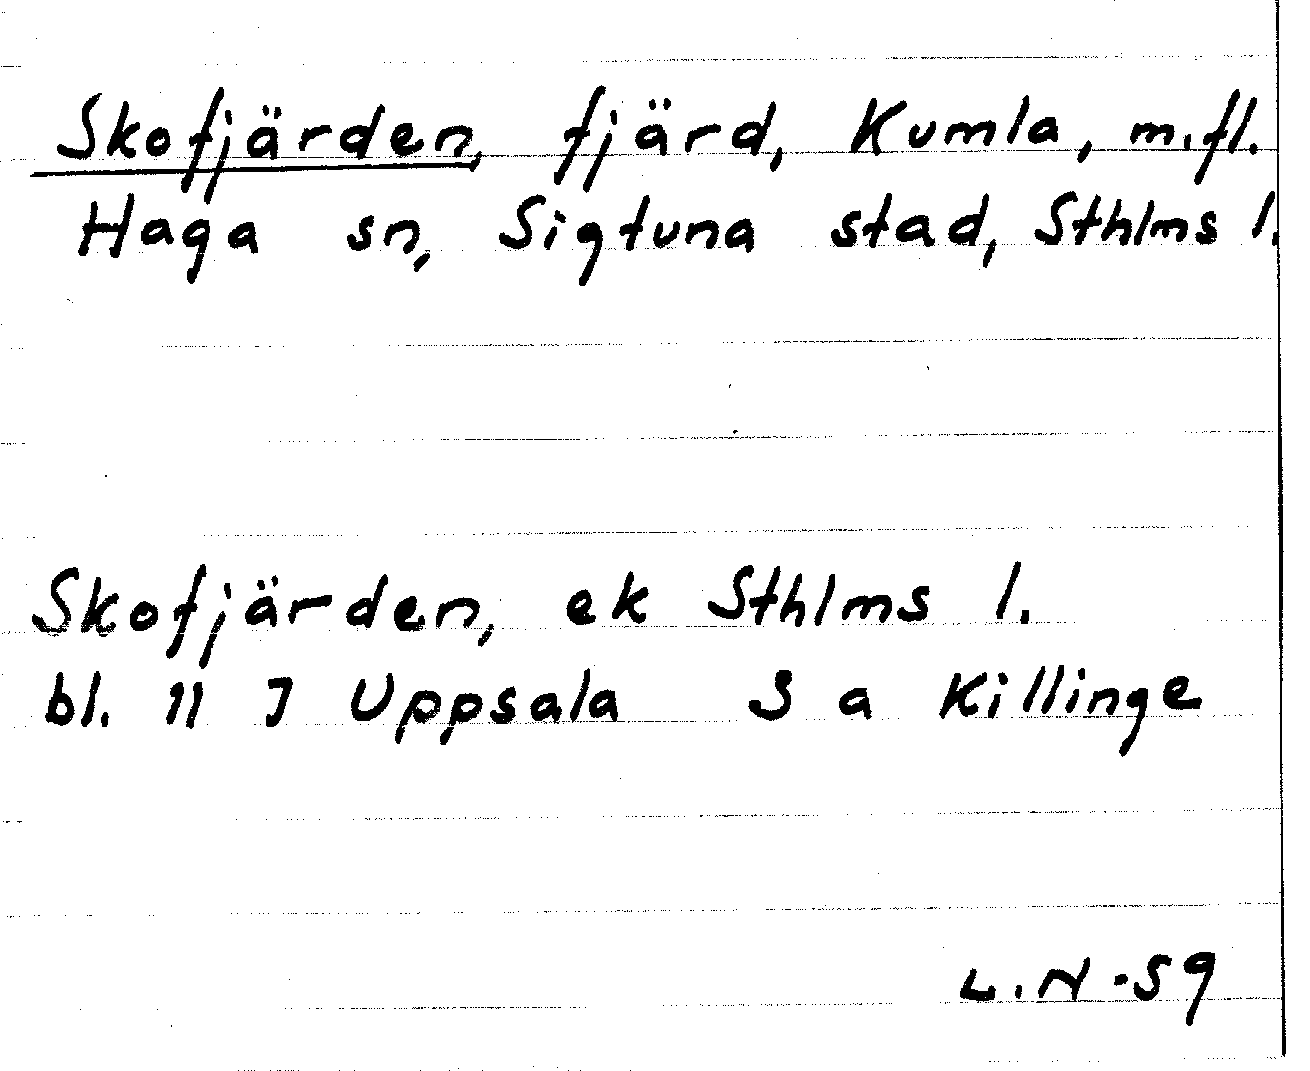 Skofjärden, fjärd, Kumla, m.fl.
Haga sn, Sigtuna stad, Sthlms l.
Skofjärden, ek Sthlms l.
bl. 11 J Uppsala S a Killinge
L.N -59